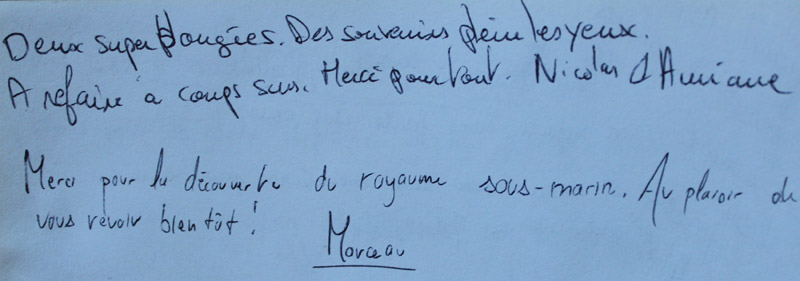 Deux super plongées. Des souvenirs plein les yeux.
A refaire à coups surs. Merci pour tout. Nicolas & Auriane
Merci pour la découverte du royaume sous-marin. Au plaisir de
vous revoir bientôt !
Marceau